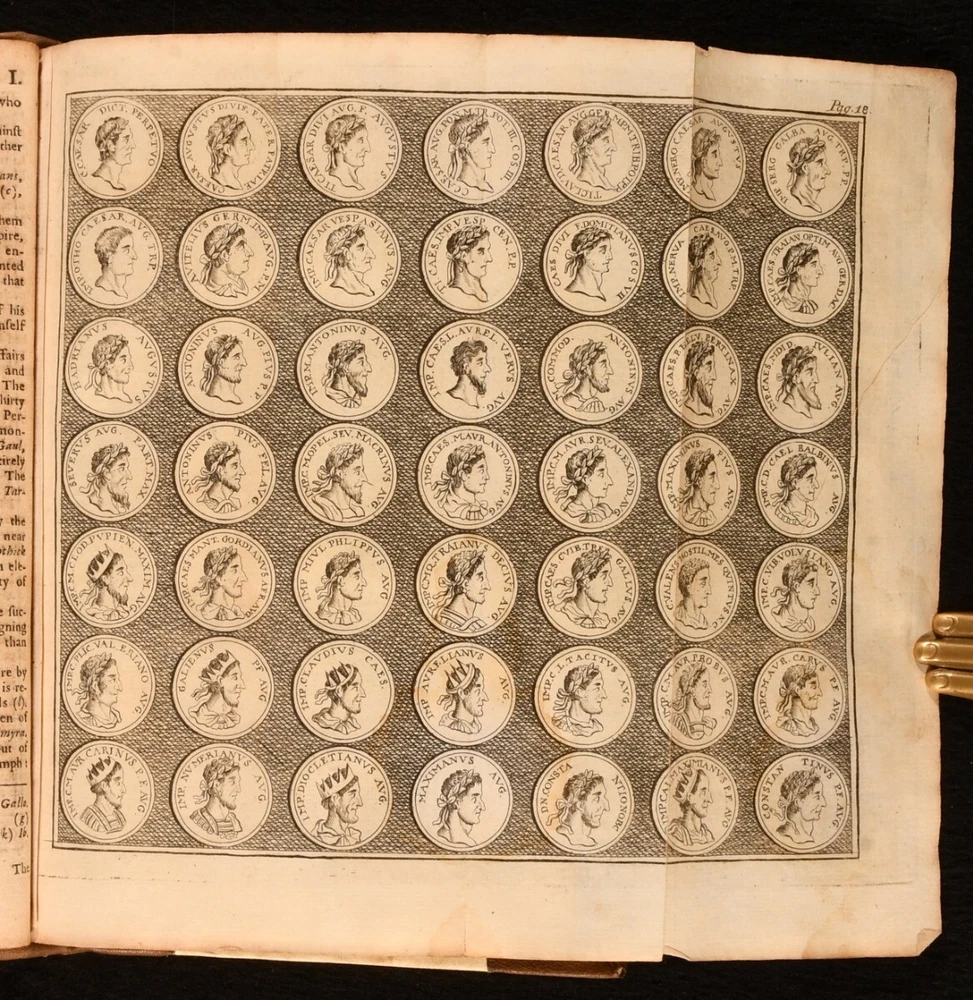 I.
who
ther
(c),
hem
pire,
en-
nted
that
f his
nself
ffairs
and
The
hirty
Per-
Gaul,
tirely
The
Tar-
y the
near
n ele-
ty of
suc-
gning
than
re by
is re-
en of
myra.
out of
Gallo.
(g)
k) Ib.
The
Pag. 18
C.CAESAR DICT. PERPETVO
CAESAR AVGVSTVS DIVI F. PATER PATRIAE
TI CAESAR DIVI AVG. F. AVGVSTVS
C.CAESAR AVG. PON.M.TR.POT.III.COS.III
TI CLAVD CAESAR AVG GERM PM TRIB POT PP
IMP NERO CAESAR AVGVSTVS
IMP SERG GALBA AVG TRP PP.
IMP OTHO CAESAR AVG TRP.
A VITELLIVS GERM IMP AVG
IMP CAESAR VESPASIANVS AVG
T. CAES. IMP. VESP CEN. P.P.
CAES DIVI F DOMITIANVS COS VII
IMP. NERVA CAES AVG PM TRP
IMP CAES TRAIAN OPTIM AVG GER DAC
HADRIANVS AVGVSTVS
ANTONINVS AVG PIVS P.P
IMP. M. ANTONINVS AVG.
IMP. CAES. L. AVREL. VERVS AVG.
COMMOD. ANTONINVS AVG
IMP. CAES P. HELV. PERTINAX AVG
IMP CAES M DID. IVLIAN AVG
SEVERVS AVG. PART. MAX
ANTONINVS PIVS FEL. AVG
IMP. C. M. OPEL. SEV. MACRINVS AVG
IMP. CAES. M AVR ANTONINVS AVG
IMP. C. M AVR. SEV ALEXAND AVG
IMP. MAXIMINVS PIVS AVG
IMP. C. D. CAEL BALBINVS AVG
IMP. M. CLOD PVPIEN. MAXIM. AVG
IMP CAES M ANT. GORDIANVS AFR AVG
IMP M IVL PHLIPPVS AVG
IMP C M Q TRAIANVS DECIVS AVG
IMP CAES C VIB TRE GAL
C VALENS HOSTIL MES QVINTVS
IMP. C VIB VOLVSIANO AVG
IMP. C. P LIC VALERIANO AVG
GALIENVS PF AVG
IMP CLAVDIVS CAES.
IMP AVRELIANVS AVG
IMP. C L TACITVS AVG.
IMP. C. M. AVR. PROBVS AVG
IMP. C. M. AVR. CARVS PF AVG
IMP C M AVR CARINVS P F AVG
IMP. NVMERIANVS AVG.
IMP. DIOCLETIANVS AVG.
MAXIMANVS AVG.
CON. CONSTA NTI NOB
MAXIMIANVS P F AVG
CONSTAN TINVS P.F. AVG